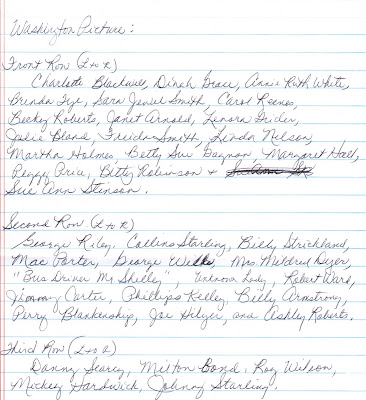 Washington Picture:
Front Row (L to R)
Charlotte Blackwell, Dinah Grace, Annie Ruth White,
Brenda Frye, Sara Janiel Smith, Carol Reeves,
Becky Roberts, Janet Arnold, Lenora Grider,
Julie Bland, Freida Smith, Linda Nelson,
Martha Holmes, Betty Sue Gagnon, Margaret Hall,
Peggy Price, Betty Robinson +
Sue Ann Stinson.
Second Row (L to R)
George Riley, Collins Starling, Billy Strickland,
Mac Porter, George Wells, Mrs Mildred Dyer,
"Bus Driver Mr. Shelley", Unknown Lady, Robert Ward,
Jimmy Carter, Phillips Kelley, Billy Armstrong,
Perry Blankenship, Joe Hilyer, and Ashley Roberts.
Third Row (L to R)
Danny Searcy, Milton Bond, Roy Wilson,
Mickey Hardwick, Johnny Starling.